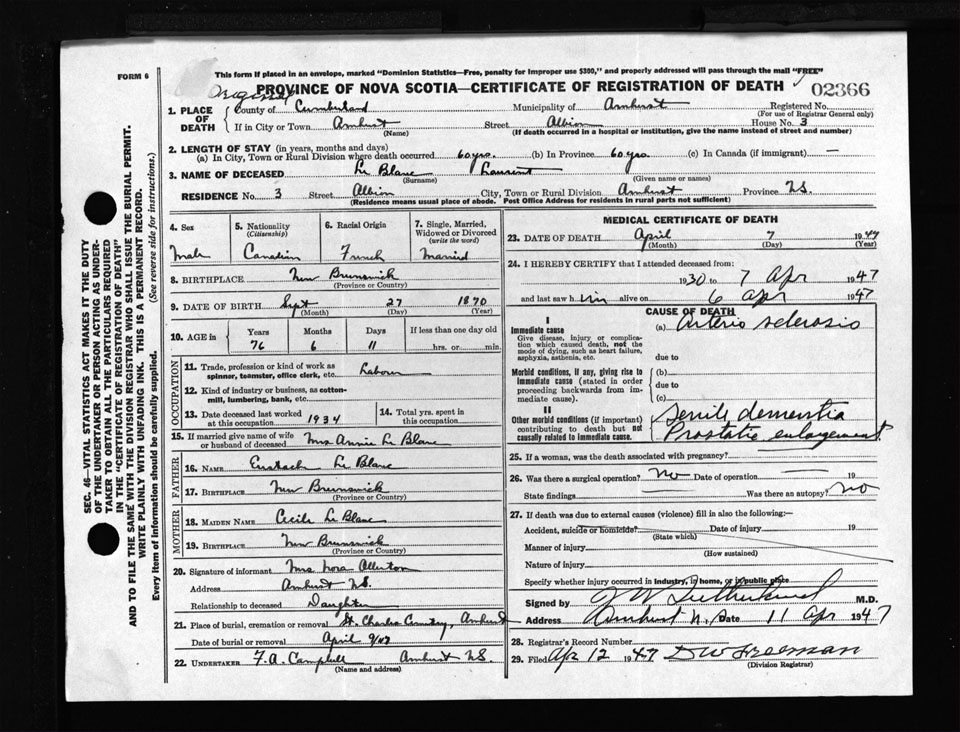 FORM 6
This form if placed in an envelope, marked "Dominion Statistics—Free, penalty for improper use $300," and properly addressed will pass through the mail "FREE"
PROVINCE OF NOVA SCOTIA—CERTIFICATE OF REGISTRATION OF DEATH
02366
1. PLACE OF DEATH
County of Cumberland Municipality of Amherst Registered No.
(For use of Registrar General only)
If in City or Town Amherst Street Albion House No. 3
(Name) (If death occurred in a hospital or institution, give the name instead of street and number)
2. LENGTH OF STAY (in years, months and days)
(a) In City, Town or Rural Division where death occurred 60 yrs. (b) In Province 60 yrs. (c) In Canada (if immigrant) —
3. NAME OF DECEASED Le Blanc Laurent
(Surname) (Given name or names)
RESIDENCE No. 3 Street Albion City, Town or Rural Division Amherst Province N.S.
(Residence means usual place of abode. Post Office Address for residents in rural parts not sufficient)
SEC. 46—VITAL STATISTICS ACT MAKES IT THE DUTY
OF THE UNDERTAKER OR PERSON ACTING AS UNDER-
TAKER TO OBTAIN ALL THE PARTICULARS REQUIRED
IN THE "CERTIFICATE OF REGISTRATION OF DEATH"
AND TO FILE THE SAME WITH THE DIVISION REGISTRAR WHO SHALL ISSUE THE BURIAL PERMIT.
WRITE PLAINLY WITH UNFADING INK. THIS IS A PERMANENT RECORD.
Every item of information should be carefully supplied. (See reverse side for instructions.)
4. Sex 5. Nationality (Citizenship) 6. Racial Origin 7. Single, Married, Widowed or Divorced (write the word)
Male Canadian French Married
8. BIRTHPLACE New Brunswick
(Province or Country)
9. DATE OF BIRTH Sept 27 1870
(Month) (Day) (Year)
10. AGE in Years Months Days If less than one day old
76 6 11 hrs. or min.
OCCUPATION
11. Trade, profession or kind of work as spinner, teamster, office clerk, etc. Labour
12. Kind of industry or business, as cotton-mill, lumbering, bank, etc.
13. Date deceased last worked at this occupation 1934 14. Total yrs. spent in this occupation
15. If married give name of wife or husband of deceased Mrs Annie Le Blanc
FATHER
16. NAME Eustach Le Blanc
17. BIRTHPLACE New Brunswick
(Province or Country)
MOTHER
18. MAIDEN NAME Cecile Le Blanc
19. BIRTHPLACE New Brunswick
(Province or Country)
20. Signature of informant Mrs. Nora Allerton
Address Amherst N.S.
Relationship to deceased Daughter
21. Place of burial, cremation or removal St. Charles Cemetery, Amherst
Date of burial or removal April 9/47
22. UNDERTAKER F. A. Campbell Amherst N.S.
(Name and address)
MEDICAL CERTIFICATE OF DEATH
23. DATE OF DEATH April 7 1947
(Month) (Day) (Year)
24. I HEREBY CERTIFY that I attended deceased from:
1930 to 7 Apr 1947
and last saw him alive on 6 apr 1947
CAUSE OF DEATH
I
Immediate cause (a) Arterio sclerosis
Give disease, injury or complication which caused death, not the mode of dying, such as heart failure, asphyxia, asthenia, etc.
due to
Morbid conditions, if any, giving rise to immediate cause (stated in order proceeding backwards from immediate cause). (b)
due to
(c)
II
Other morbid conditions (if important) contributing to death but not causally related to immediate cause.
Senile dementia
Prostatic enlargement
25. If a woman, was the death associated with pregnancy? —
26. Was there a surgical operation? No Date of operation — 19
State findings — Was there an autopsy? no
27. If death was due to external causes (violence) fill in also the following:—
Accident, suicide or homicide? Date of injury 19
(State which)
Manner of injury
(How sustained)
Nature of injury
Specify whether injury occurred in industry, in home, or in public place
Signed by J W Sutherland M.D.
Address Amherst N.S. Date 11 apr 1947
28. Registrar's Record Number
29. Filed Apr 12 1947 D W Freeman
(Division Registrar)